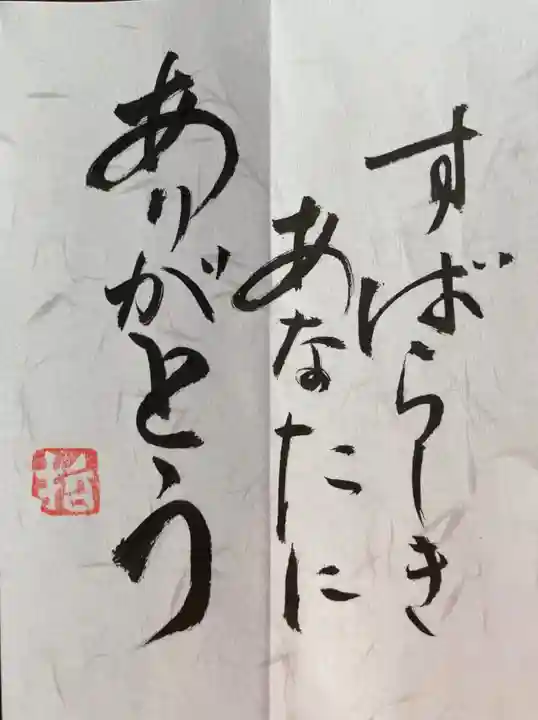 すばらしき
あなたに
ありがとう
哲